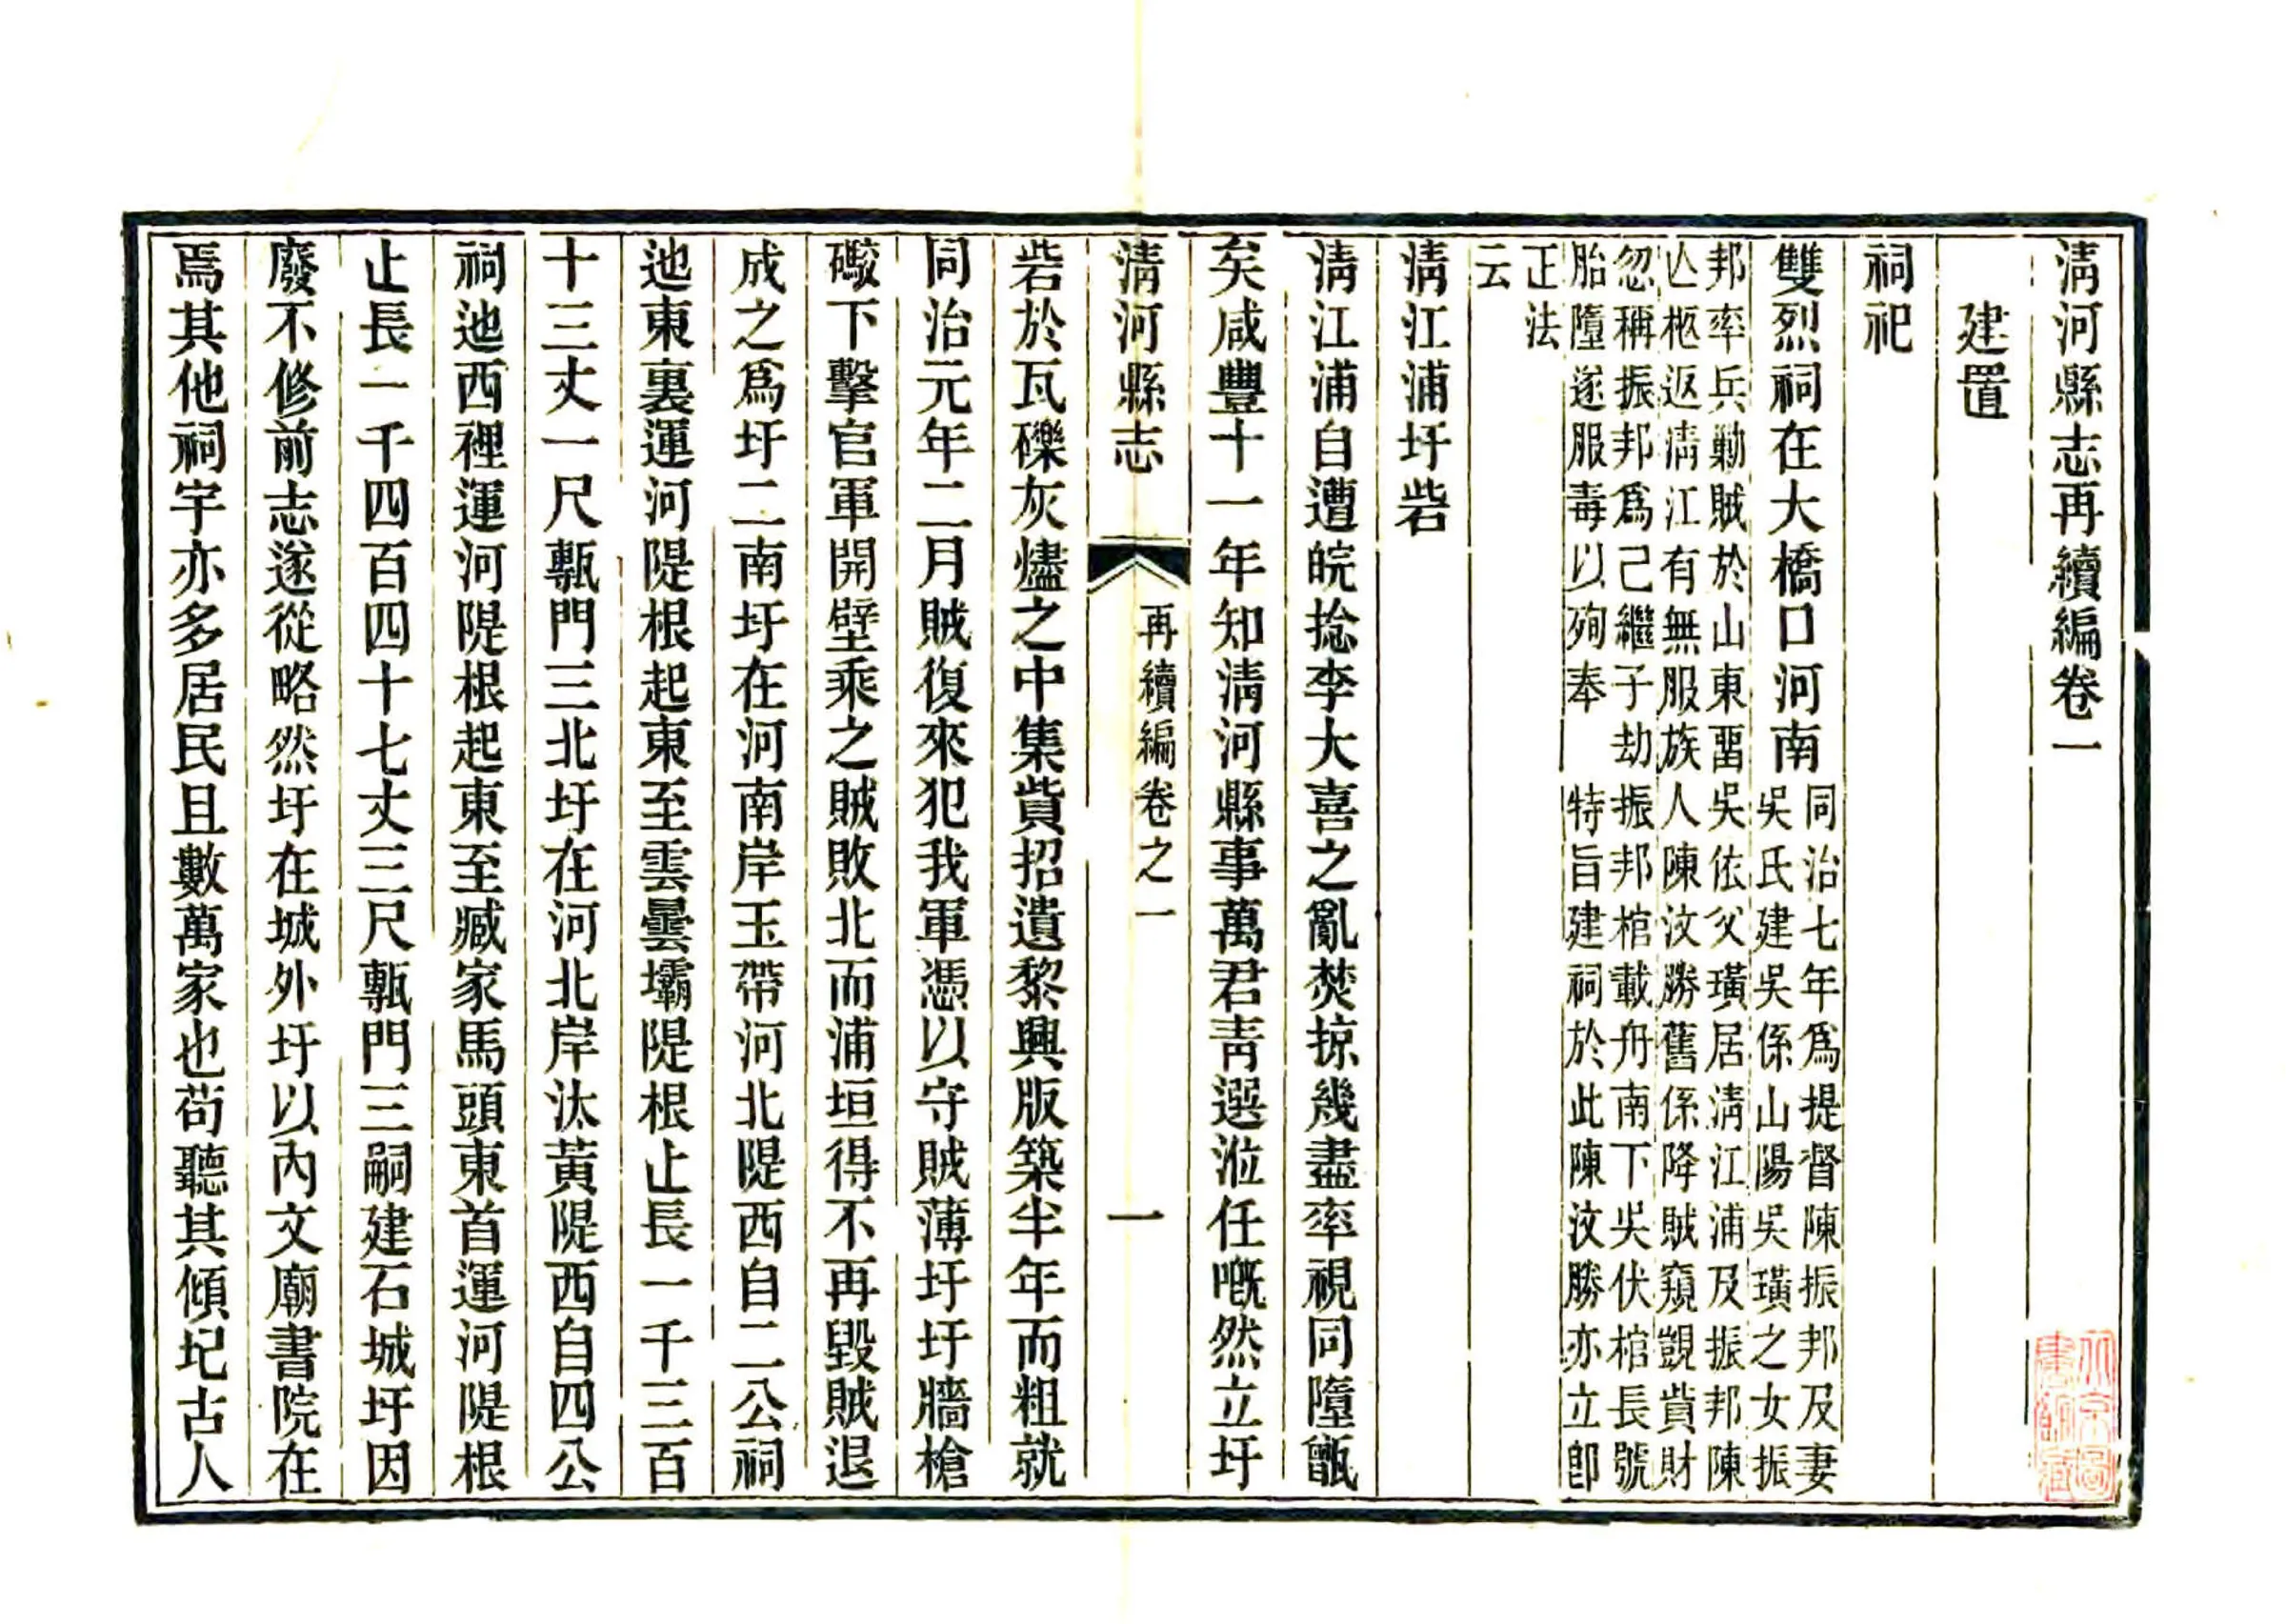 淸河縣志再續編卷一
建置
祠祀
雙烈祠在大橋口河南
同治七年爲提督陳振邦及妻
吳氏建吳係山陽吳璜之女振
邦率兵勦賊於山東畱吳依父璜居淸江浦及振邦陳
亾柩返淸江有無服族人陳汶勝舊係降賊窺覬貲財
忽稱振邦爲己繼子劫振邦棺載舟南下吳伏棺長號
胎墮遂服毒以殉奉 特旨建祠於此陳汶勝亦立卽
正法
云
淸江浦圩砦
淸江浦自遭皖捻李大喜之亂焚掠幾盡率視同墮甑
矣咸豐十一年知淸河縣事萬君靑選涖任嘅然立圩
淸河縣志
再續編卷之一
一
砦於瓦礫灰燼之中集貲招遺黎興版築半年而粗就
同治元年二月賊復來犯我軍憑以守賊薄圩圩牆槍
礮下擊官軍開壁乘之賊敗北而浦垣得不再毀賊退
成之爲圩二南圩在河南岸玉帶河北隄西自二公祠
池東裏運河隄根起東至雲曇壩隄根止長一千三百
十三丈一尺甎門三北圩在河北岸汰黃隄西自四公
祠池西裡運河隄根起東至臧家馬頭東首運河隄根
止長一千四百四十七丈三尺甎門三嗣建石城圩因
廢不修前志遂從略然圩在城外圩以內文廟書院在
焉其他祠宇亦多居民且數萬家也苟聽其傾圮古人